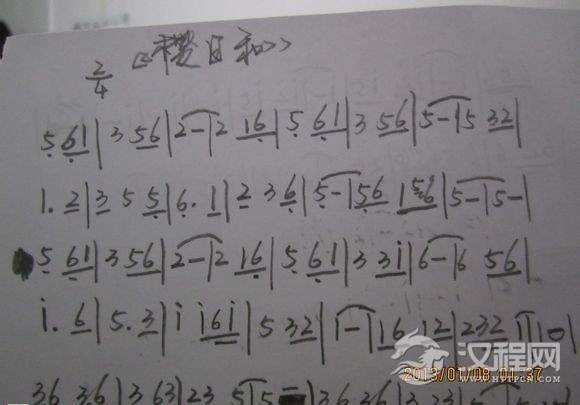 2/4 《樱目和》
5 61 | 3 56 | 2 - | 2 16 | 5 61 | 3 56 | 5 - | 5 32 |
1. 2 | 3 5 5 | 6. 1 | 2 3 6 | 5 - | 56 156 | 5 - | 5 - |
5 61 | 3 56 | 2 - | 2 16 | 5 61 | 3 3i | 6 - | 6 56 |
i. 6 | 5. 3 | i i6i | 5 32 | 1 - | 16 12 | 232 1 | 10 |
36 36 | 3 63 | 23 5 | 5 - | 36 36 | 3 23 |
汉程网
WWW.HTTPCN.COM
2013/01/08 01:37